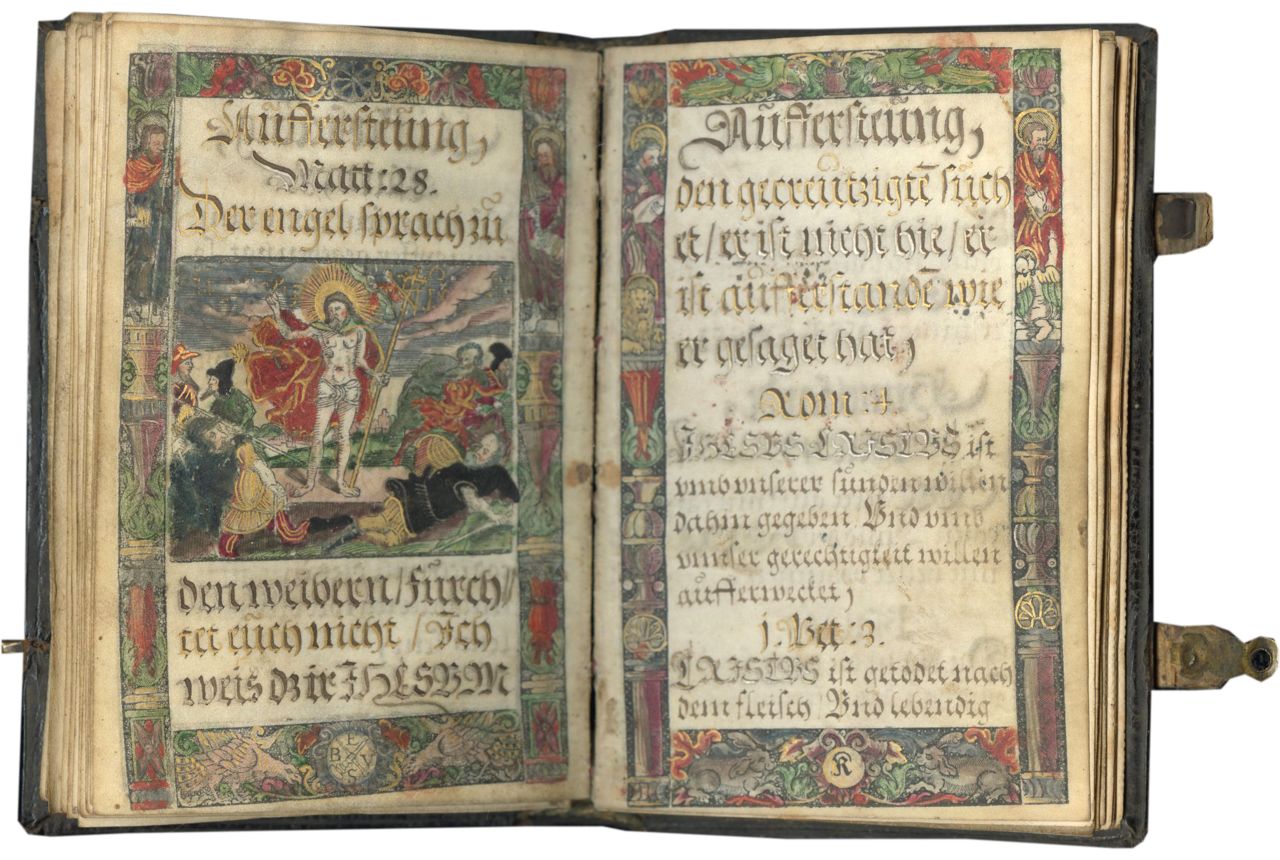 Auffersteung,
Matt: 28.
Der engel sprach zu
den weibern / Furch//
tet euch nicht / Ich
weis dz ir IHESVM
B S
Auffersteung,
den gecreutzigtē such
et / er ist nicht hie / er
ist aufferstandē wie
er gesaget hat,
Rom: 4.
IHESVS CRISTVS ist
vmb vnserer sunden willen
dahin gegeben / Vnd vmb
vnnser gerechtigkeit willen
aufferwecket,
1. Pet: 3.
CRISTVS ist getodet nach
dem fleisch / Vnd lebendig